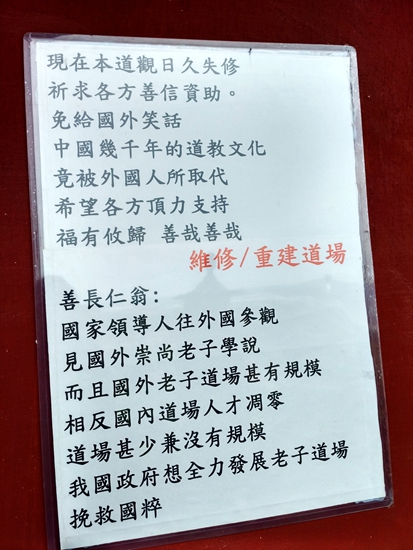 現在本道觀日久失修
祈求各方善信資助。
免給國外笑話
中國幾千年的道教文化
竟被外國人所取代
希望各方頂力支持
福有攸歸 善哉善哉
維修/重建道場
善長仁翁:
國家領導人往外國參觀
見國外崇尚老子學說
而且國外老子道場甚有規模
相反國內道場人才凋零
道場甚少兼沒有規模
我國政府想全力發展老子道場
挽救國粹